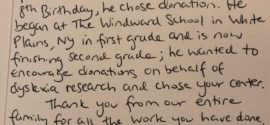 8th Birthday, he chose donation. He
began at The Windward School in White
Plains, NY in first grade and is now
finishing second grade; he wanted to
encourage donations on behalf of
dyslexia research and chose your center.
Thank you from our entire
family for all the work you have done